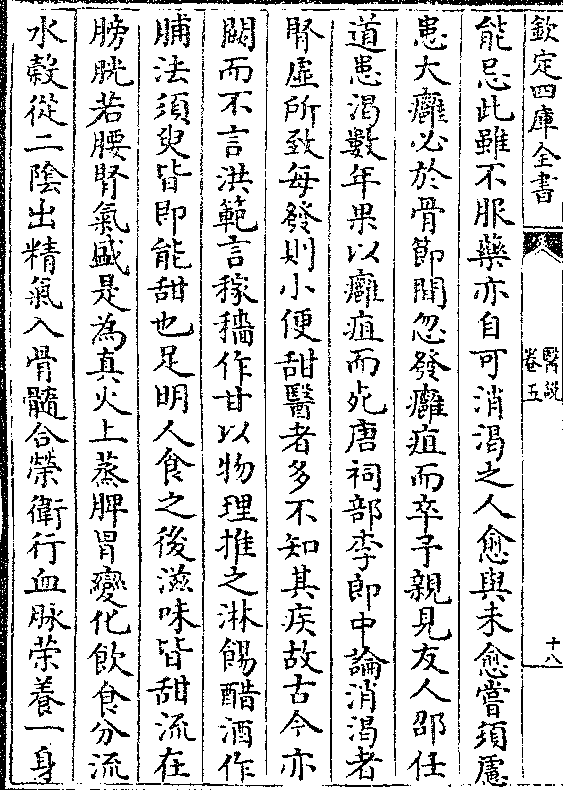 欽定四庫全書
醫說
卷五
十八
能忌此雖不服藥亦自可消渴之人愈與未愈嘗須慮
患大癰必於骨節間忽發癰疽而卒予親見友人邵任
道患渴數年果以癰疽而死唐祠部李郎中論消渴者
腎虛所致每發則小便甜醫者多不知其疾故古今亦
闕而不言洪範言稼穡作甘以物理推之淋餳醋酒作
脯法須臾皆即能甜也足明人食之後滋味皆甜流在
膀胱若腰腎氣盛是為真火上蒸脾胃變化飲食分流
水穀從二陰出精氣入骨髓合榮衛行血脉榮養一身